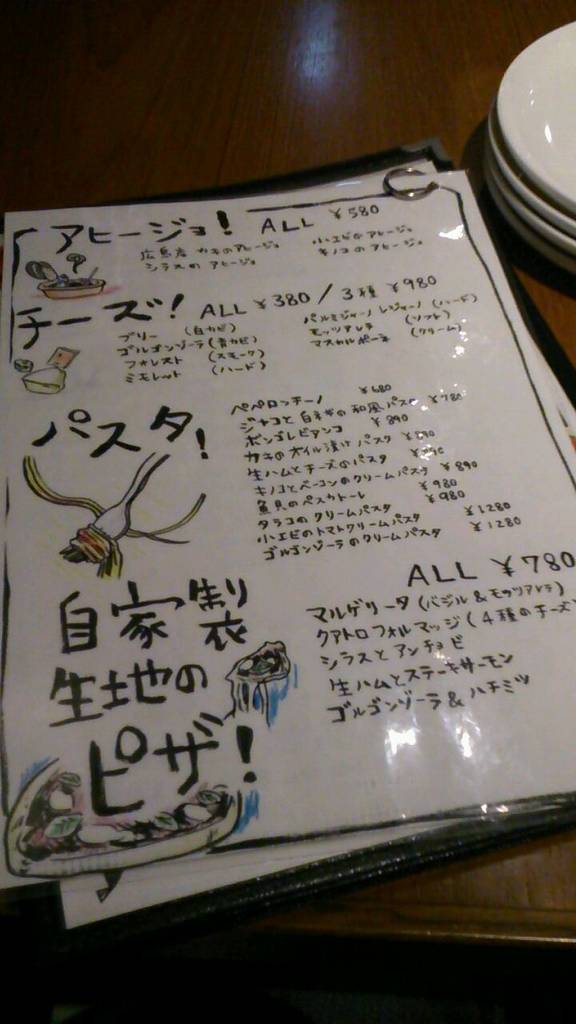 アヒージョ! ALL ¥580
広島産 カキのアヒージョ 小エビのアヒージョ
シラスのアヒージョ キノコのアヒージョ
チーズ! ALL ¥380 / 3種 ¥980
ブリー (白カビ) パルミジャーノレジャーノ (ハード)
ゴルゴンゾーラ (青カビ) モッツアレラ (ソフト)
フォレスト (スモーク) マスカルポーネ (クリーム)
ミモレット (ハード)
パスタ!
ペペロンチーノ ¥680
ジャコと白ネギの和風パスタ ¥780
ボンゴレビアンコ ¥890
カキのオイル漬けパスタ ¥890
生ハムとチーズのパスタ
キノコとベーコンのクリームパスタ ¥890
魚貝のペスカトーレ ¥980
タラコのクリームパスタ ¥980
小エビのトマトクリームパスタ ¥1280
ゴルゴンゾーラのクリームパスタ ¥1280
自家製
生地の
ピザ!
ALL ¥780
マルゲリータ (バジル&モッツアレラ)
クアトロフォルマッジ (4種のチーズ
シラスとアンチョビ
生ハムとステーキサーモン
ゴルゴンゾーラ&ハチミツ